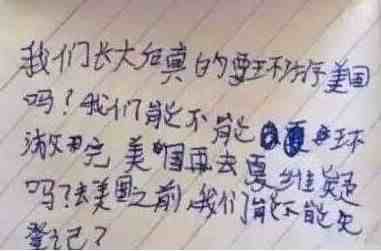 我们长大后真的要环游美国
吗？我们能不能夏环
游完美国再去夏维夷
吗？去美国之前，我们能不能先
登记？